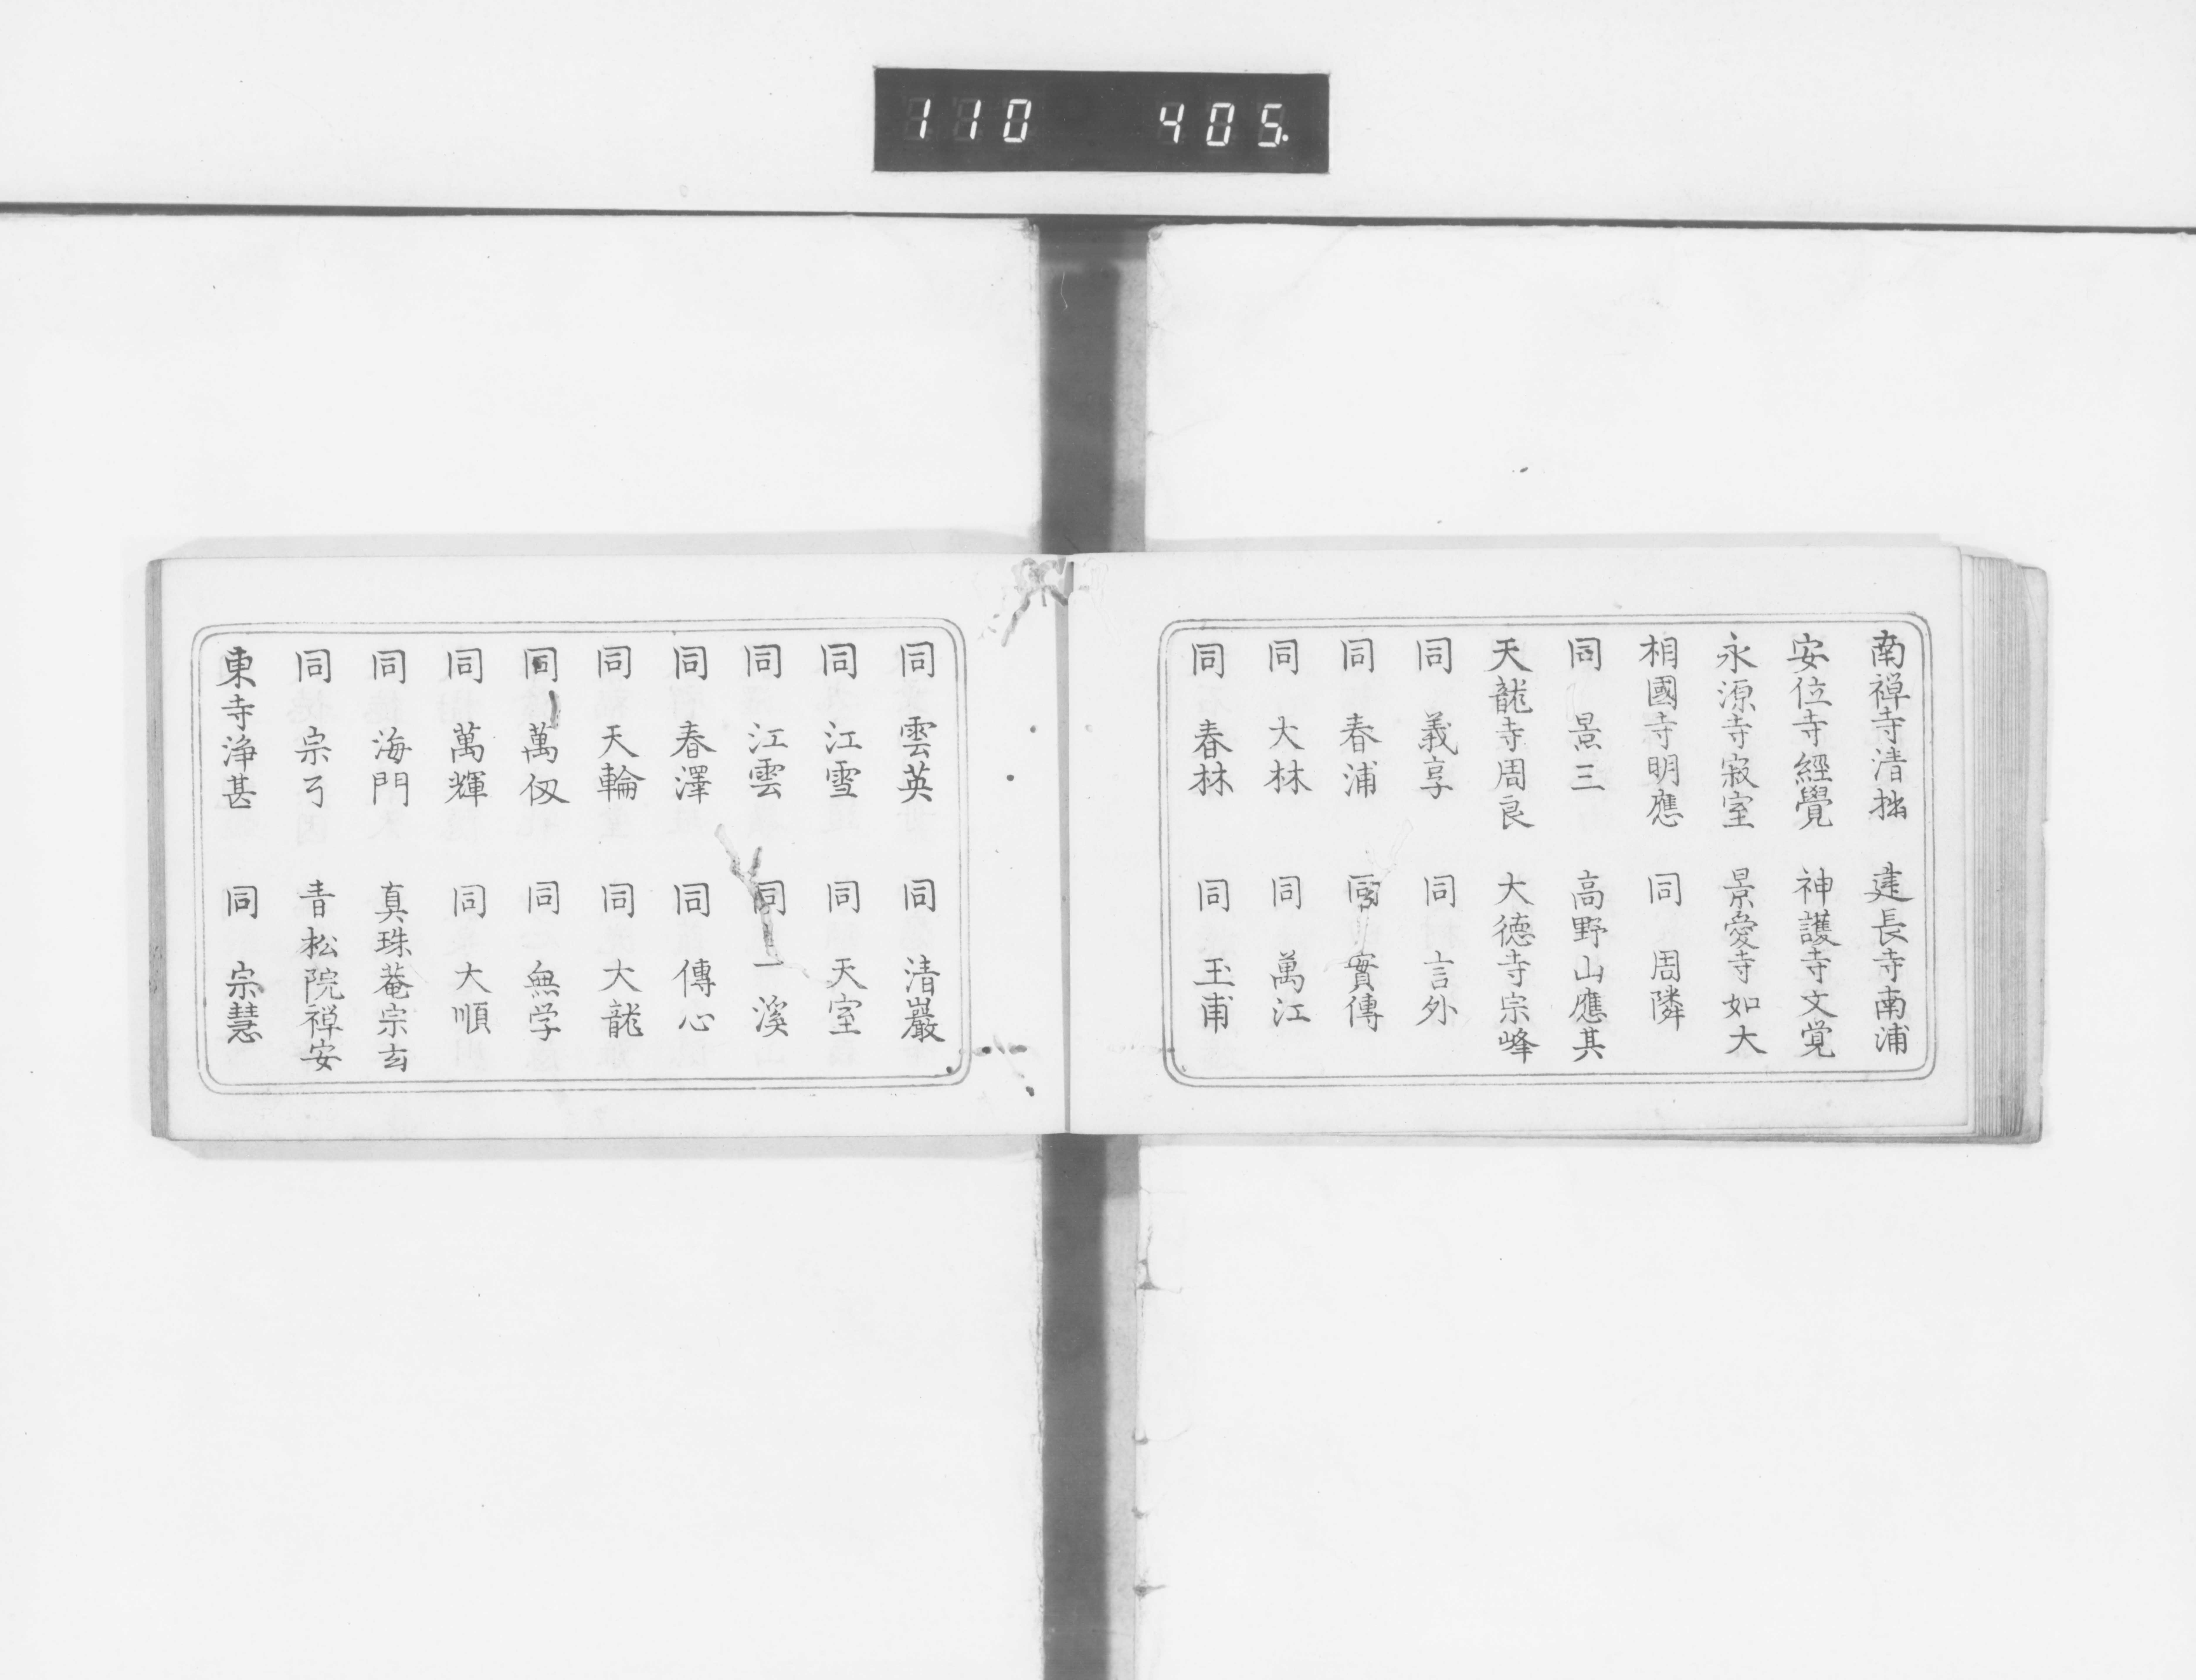 110 405.
南禅寺清拙 建長寺南浦
安位寺經覺 神護寺文覚
永源寺寂室 景愛寺如大
相國寺明應 同 周隣
同 景三 高野山應其
天龍寺周良 大徳寺宗峰
同 義享 同 言外
同 春浦 同 實傳
同 大林 同 萬江
同 春林 同 玉甫
同 雲英 同 清巖
同 江雪 同 天室
同 江雲 同 一溪
同 春澤 同 傳心
同 天輪 同 大龍
同 萬仭 同 無学
同 萬輝 同 大順
同 海門 真珠菴宗玄
同 宗弓 青松院禅安
東寺浄甚 同 宗慧